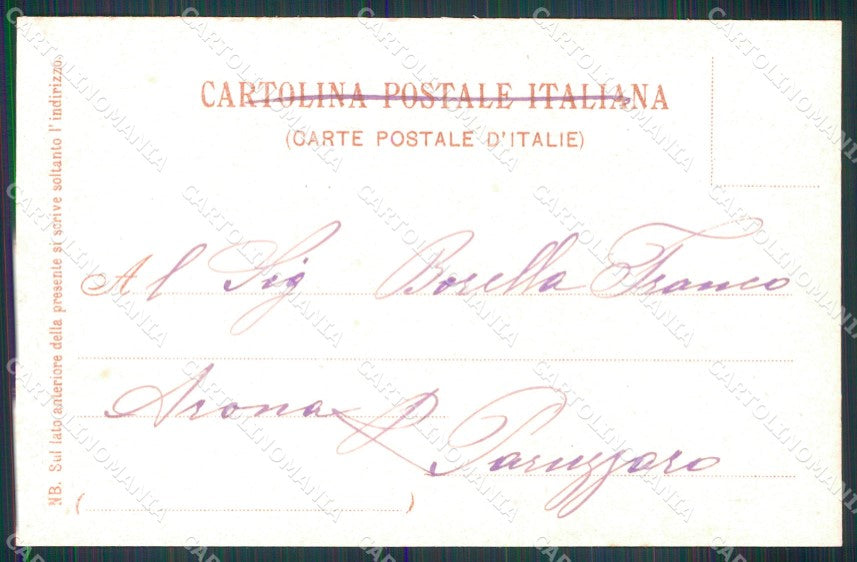 CARTOLINA POSTALE ITALIANA
(CARTE POSTALE D'ITALIE)
NB. Sul lato anteriore della presente si scrive soltanto l'indirizzo.
Al Sig Borella Franco
Arona P Paruzzaro
( )
CARTOLINOMANIA